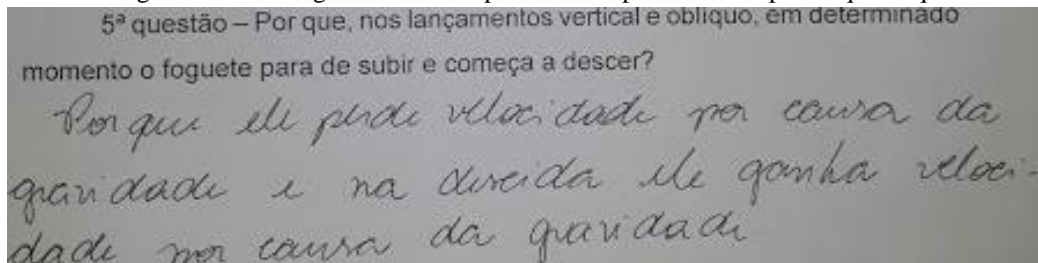 5ª questão – Por que, nos lançamentos vertical e oblíquo, em determinado
momento o foguete para de subir e começa a descer?
Por que ele perde velocidade por causa da
gravidade e na descida ele ganha veloci-
dade por causa da gravidade